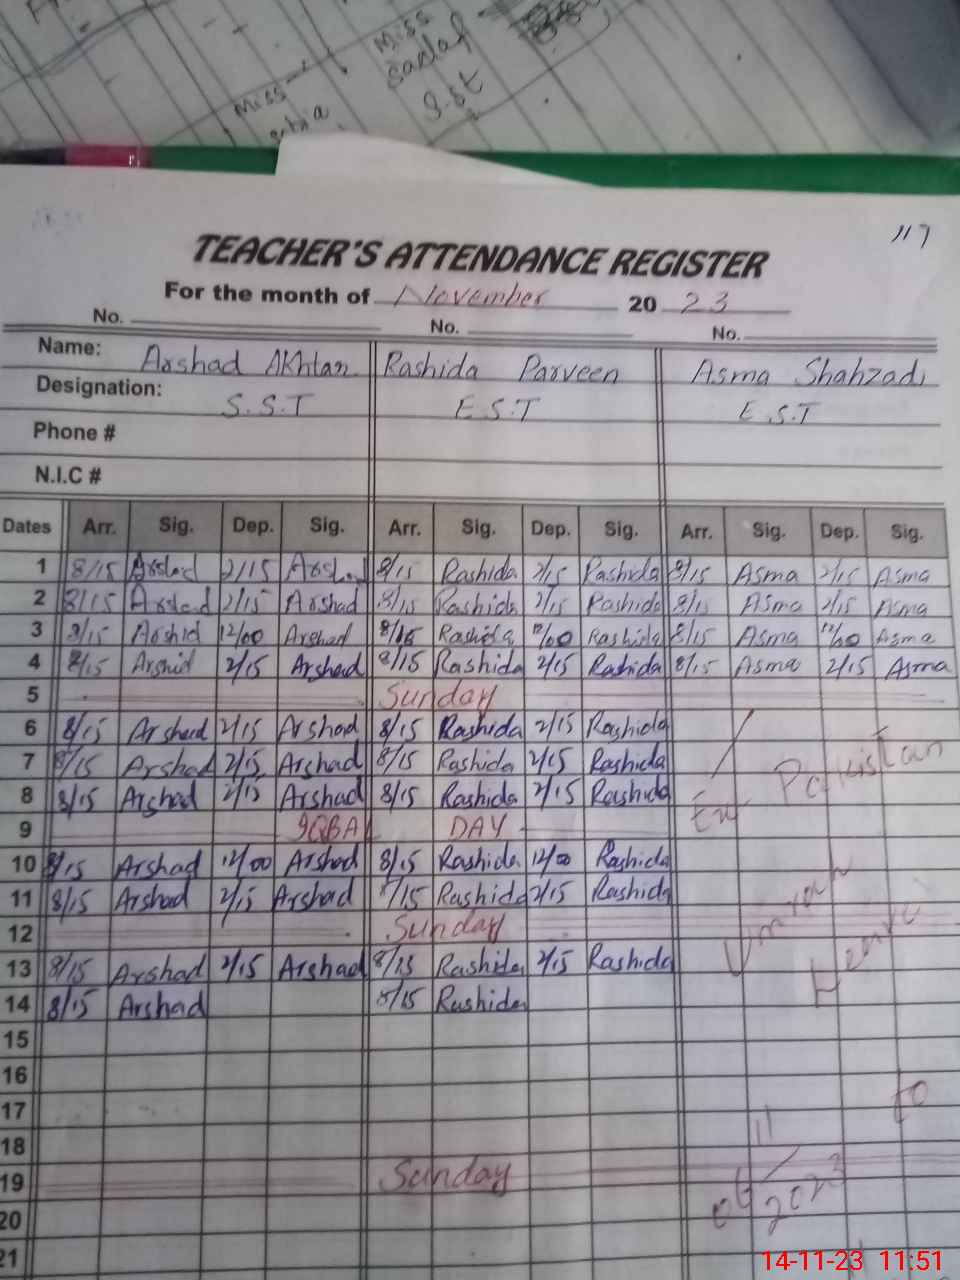 Miss
Sadaf
S.St
Miss
117
TEACHER'S ATTENDANCE REGISTER
For the month of November 2023
No. No. No.
Name: Arshad Akhtar Rashida Parveen Asma Shahzadi
Designation: S.S.T E.S.T E.S.T
Phone #
N.I.C #
Dates Arr. Sig. Dep. Sig. Arr. Sig. Dep. Sig. Arr. Sig. Dep. Sig.
1 8/15 Arshad 2/15 Arshad 8/15 Rashida 2/15 Rashida 8/15 Asma 2/15 Asma
2 8/15 Arshad 2/15 Arshad 8/15 Rashida 2/15 Rashida 8/15 Asma 2/15 Asma
3 8/15 Arshid 12/00 Arshad 8/15 Rashida 12/00 Rashida 8/15 Asma 12/00 Asma
4 8/15 Arshid 2/15 Arshad 8/15 Rashida 2/15 Rashida 8/15 Asma 2/15 Asma
5 Sunday
6 8/15 Arshad 2/15 Arshad 8/15 Rashida 2/15 Rashida
7 8/15 Arshad 2/15 Arshad 8/15 Rashida 2/15 Rashida
8 8/15 Arshad 2/15 Arshad 8/15 Rashida 2/15 Rashida Ex Pakistan
9 IQBAL DAY
10 8/15 Arshad 12/00 Arshad 8/15 Rashida 12/00 Rashida
11 8/15 Arshad 2/15 Arshad 8/15 Rashida 2/15 Rashida
12 Sunday
13 8/15 Arshad 2/15 Arshad 8/15 Rashida 2/15 Rashida Umrah Leave
14 8/15 Arshad 8/15 Rashida
15
16
17 to
18
19 Sunday 06/11/2023
20
21
14-11-23 11:51